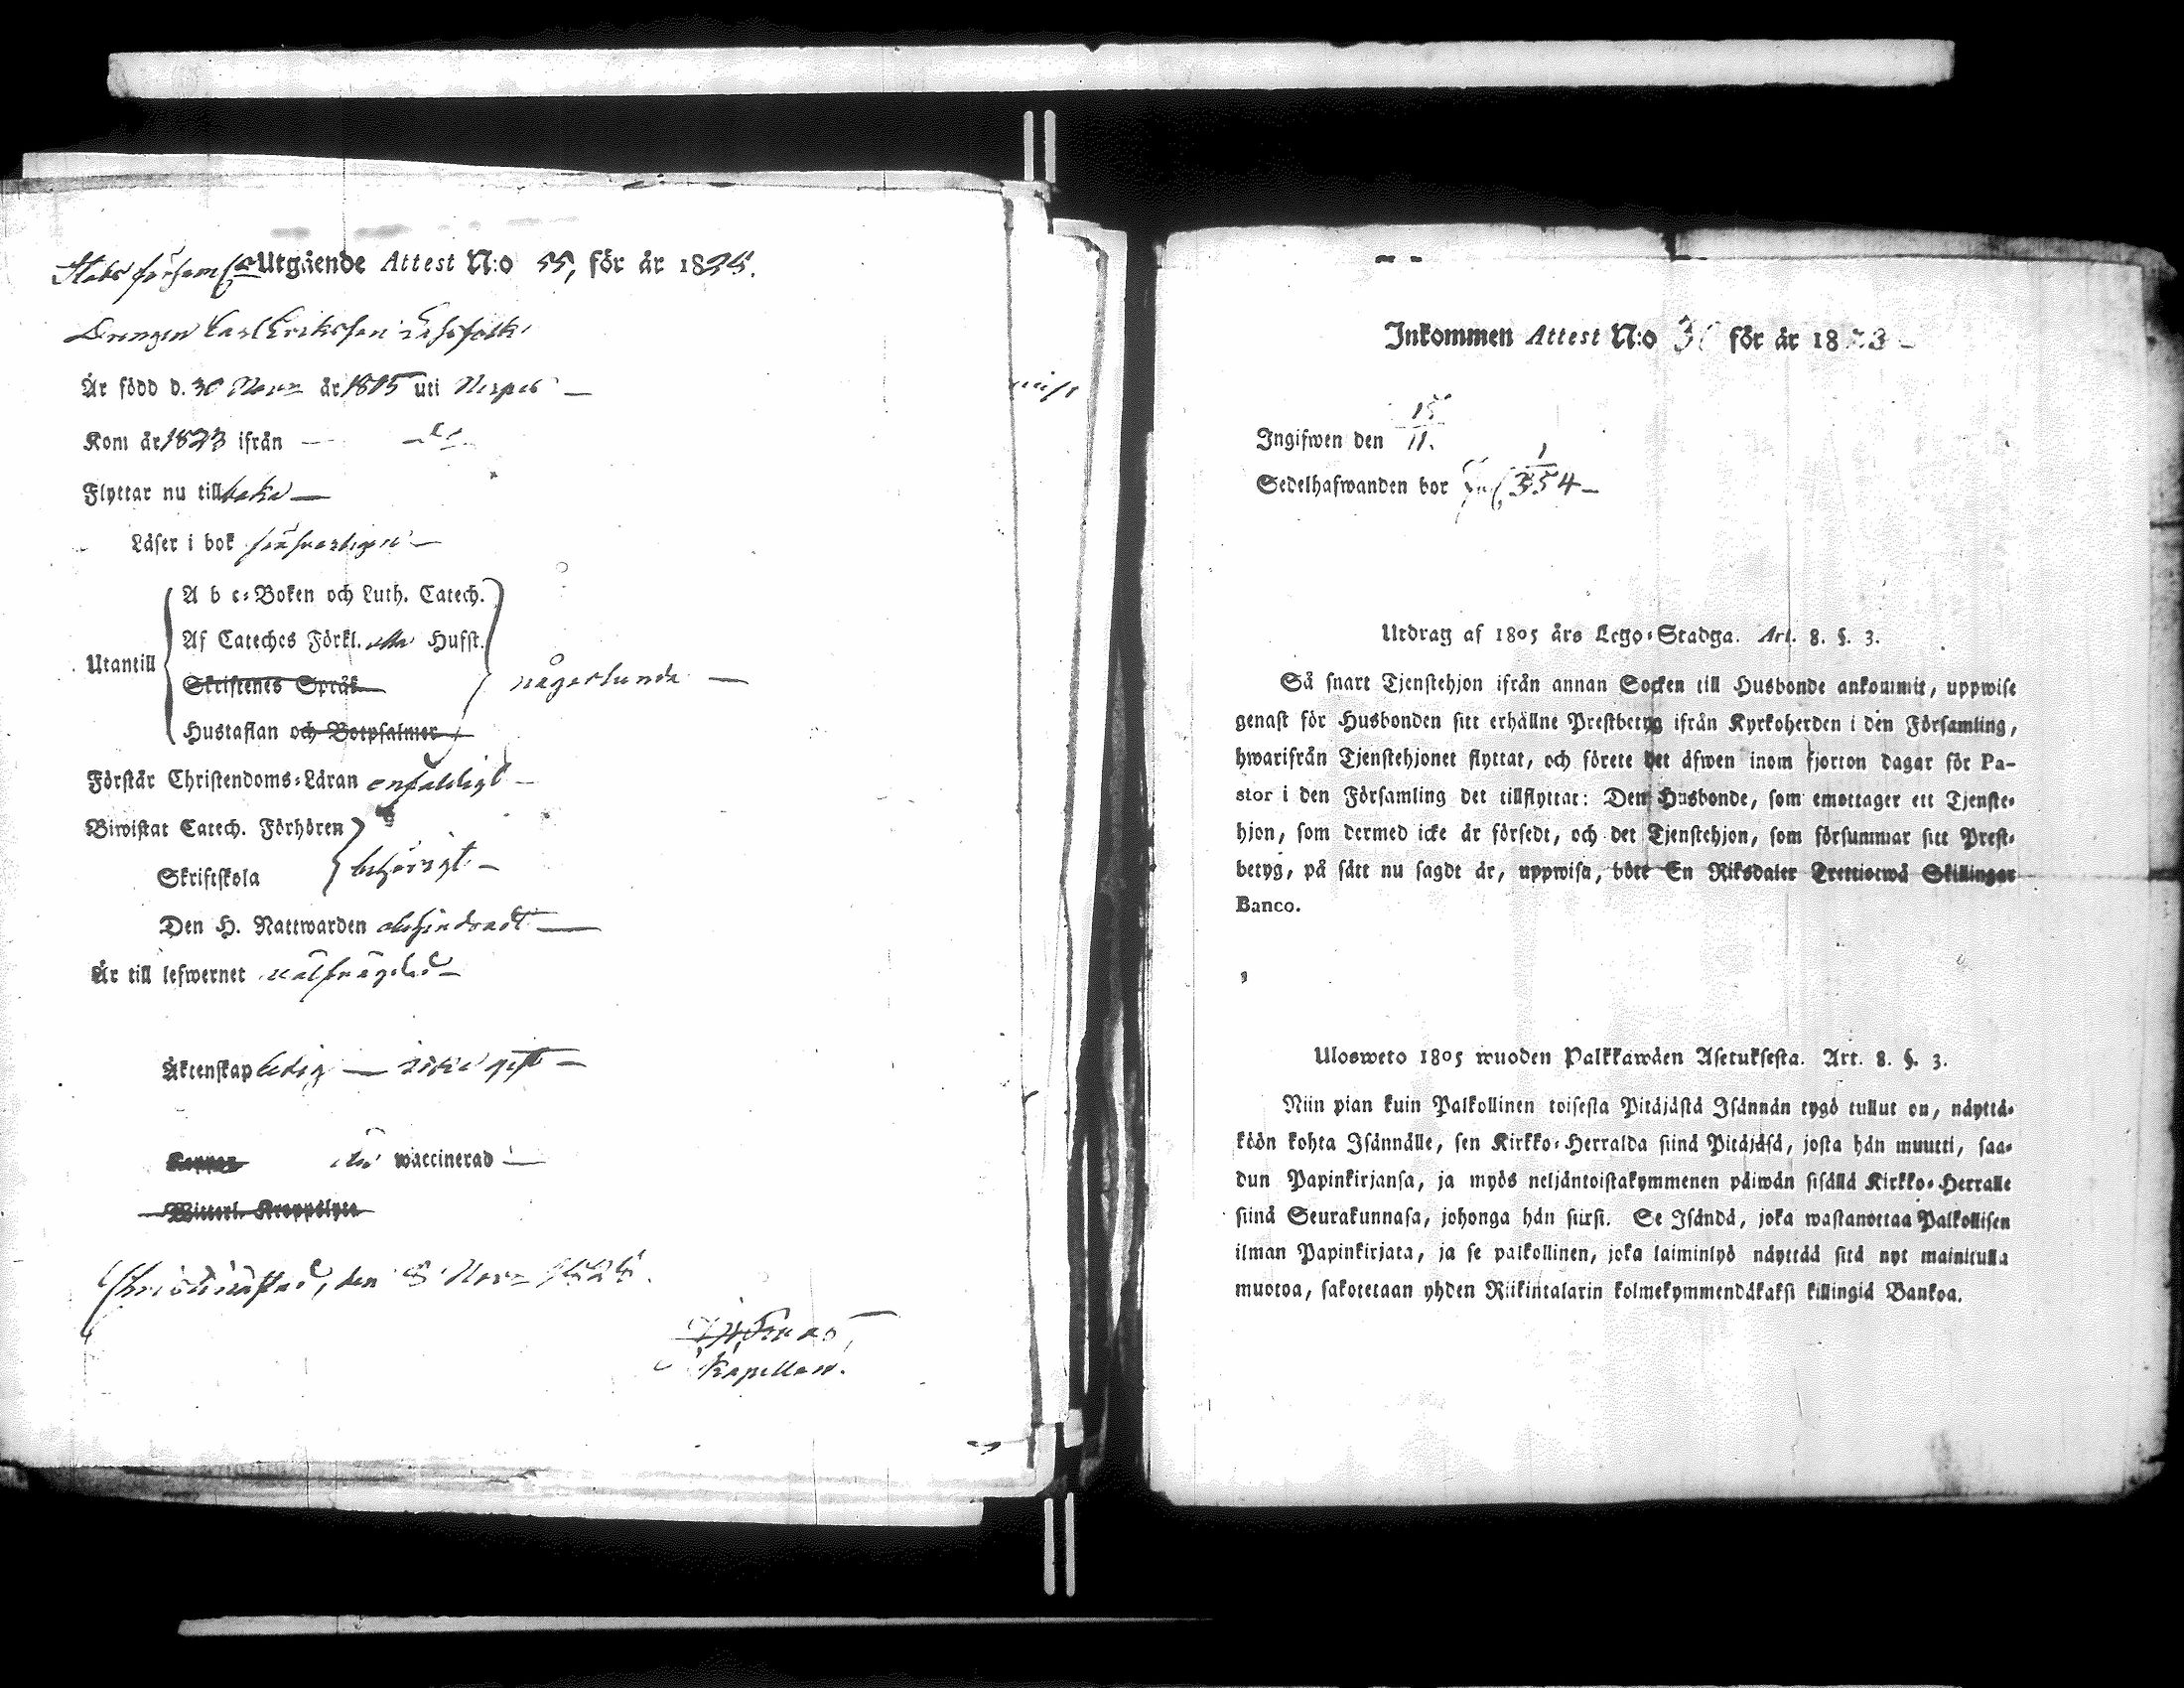 Stads församl. Utgående Attest N:o 55, för år 1825.
Drengen Carl Eriksson
År född d. 30 Novr år 1805 uti Nerpes
Kom år 1823 ifrån
Flyttar nu tillbaka
Läser i bok försvarligen
Utantill
A b c-Boken och Luth. Catech.
Af Cateches Förkl. Husst.
Skriftenes Språk
Hustaflan och Botpsalmer
någorlunda
Förstår Christendoms-Läran enfaldigt
Biwistat Catech. Förhören
Skriftskola
behörigt
Den H. Nattwarden obehindradt
Är till lefwernet välfrägdad
Äktenskap ledig
Koppor waccinerad
Witterl. Kroppslyte
Christinestad, den 8 Novr 1825.
Kapellan.
Inkommen Attest N:o för år 1823
Ingifwen den 15/11.
Sedelhafwanden bor 354
Utdrag af 1805 års Lego-Stadga. Art. 8. §. 3.
Så snart Tjenstehjon ifrån annan Socken till Husbonde ankommit, uppwise
genast för Husbonden sitt erhållne Prestbetyg ifrån Kyrkoherden i den Församling,
hwarifrån Tjenstehjonet flyttat, och förete det äfwen inom fjorton dagar för Pa-
stor i den Församling det tillflyttat: Den Husbonde, som emottager ett Tjenste-
hjon, som dermed icke är försedt, och det Tjenstehjon, som försummar sitt Prest-
betyg, på sätt nu sagdt är, uppwisa, böte En Riksdaler Trettiotwå Skillingar
Banco.
Ulosweto 1805 wuoden Palkkawäen Asetuksesta. Art. 8. §. 3.
Niin pian kuin Palkollinen toisesta Pitäjästä Isännän tygö tullut on, näyttä-
köön kohta Isännälle, sen Kirkko-Herralda siinä Pitäjäsä, josta hän muutti, saa-
dun Papinkirjansa, ja myös neljäntoistakymmenen päiwän sisällä Kirkko-Herralle
siinä Seurakunnasa, johonga hän siirsi. Se Isändä, joka wastanottaa Palkollisen
ilman Papinkirjata, ja se palkollinen, joka laiminlyö näyttää sitä nyt mainitulla
muotoa, sakotetaan yhden Riikintalarin kolmekymmendäkaksi killingiä Bankoa.